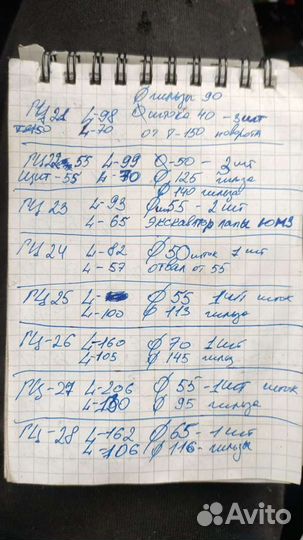 Ф гильзы 90
ГЦ 21 4-98 Ф штока 40 - 3шт
4-70 от Т-150 поворота
ГЦ 22 55 4-99 Ф-50 - 2шт
щит-55 4-70 Ф 125 гильза
Ф 140 гильза
ГЦ 23 4-93 Ф 55 - 2шт
4-65 экскаватор лапы ЮМЗ
ГЦ 24 4-82 Ф 50 шток 1шт
4-57 отвал от 55
ГЦ 25 4- Ф 55 1шт шток
4-100 Ф 113 гильза
ГЦ-26 4-160 Ф 70 1шт
4-105 Ф 145 гильз
ГЦ-27 4-206 Ф 55-1шт шток
4-100 Ф 95 гильза
ГЦ-28 4-162 Ф 65-1шт
4-106 Ф 116-гильзы
Avito